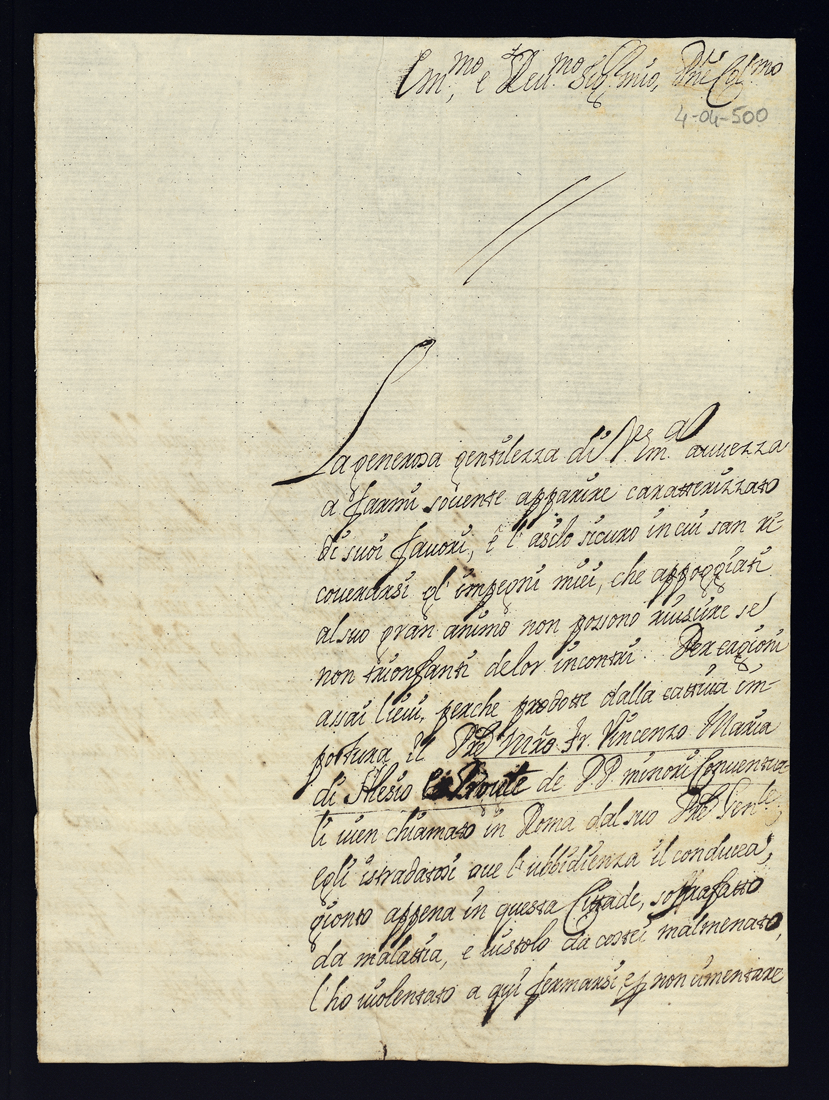 Em.mo, e Reu.mo Sig.r mio, Pne Col.mo
4-04-500
La generosa gentilezza di V. Em.a auuezza
a farmi souente apparire caratterizzato
di suoi fauori, è l'asilo sicuro in cui san ri-
couerarsi gl'impegni miei, che appoggiati
al suo gran animo non possono riuscire se
non trionfanti de lor incontri. Per cagioni
assai lieui, perche prodotte dalla cattiua im-
postura il Pre Mro Fr. Vincenzo Maria
di Silesio de PP minori Conuentua-
li uien chiamato in Roma dal suo Pre Genle,
egli istradatosi oue l'ubbidienza il conducea,
gionto appena in questa Cittade, soprafatto
da malatia, e uistolo da costei malmenato,
l'ho uiolentato a qui fermarsi, e p non cimentare